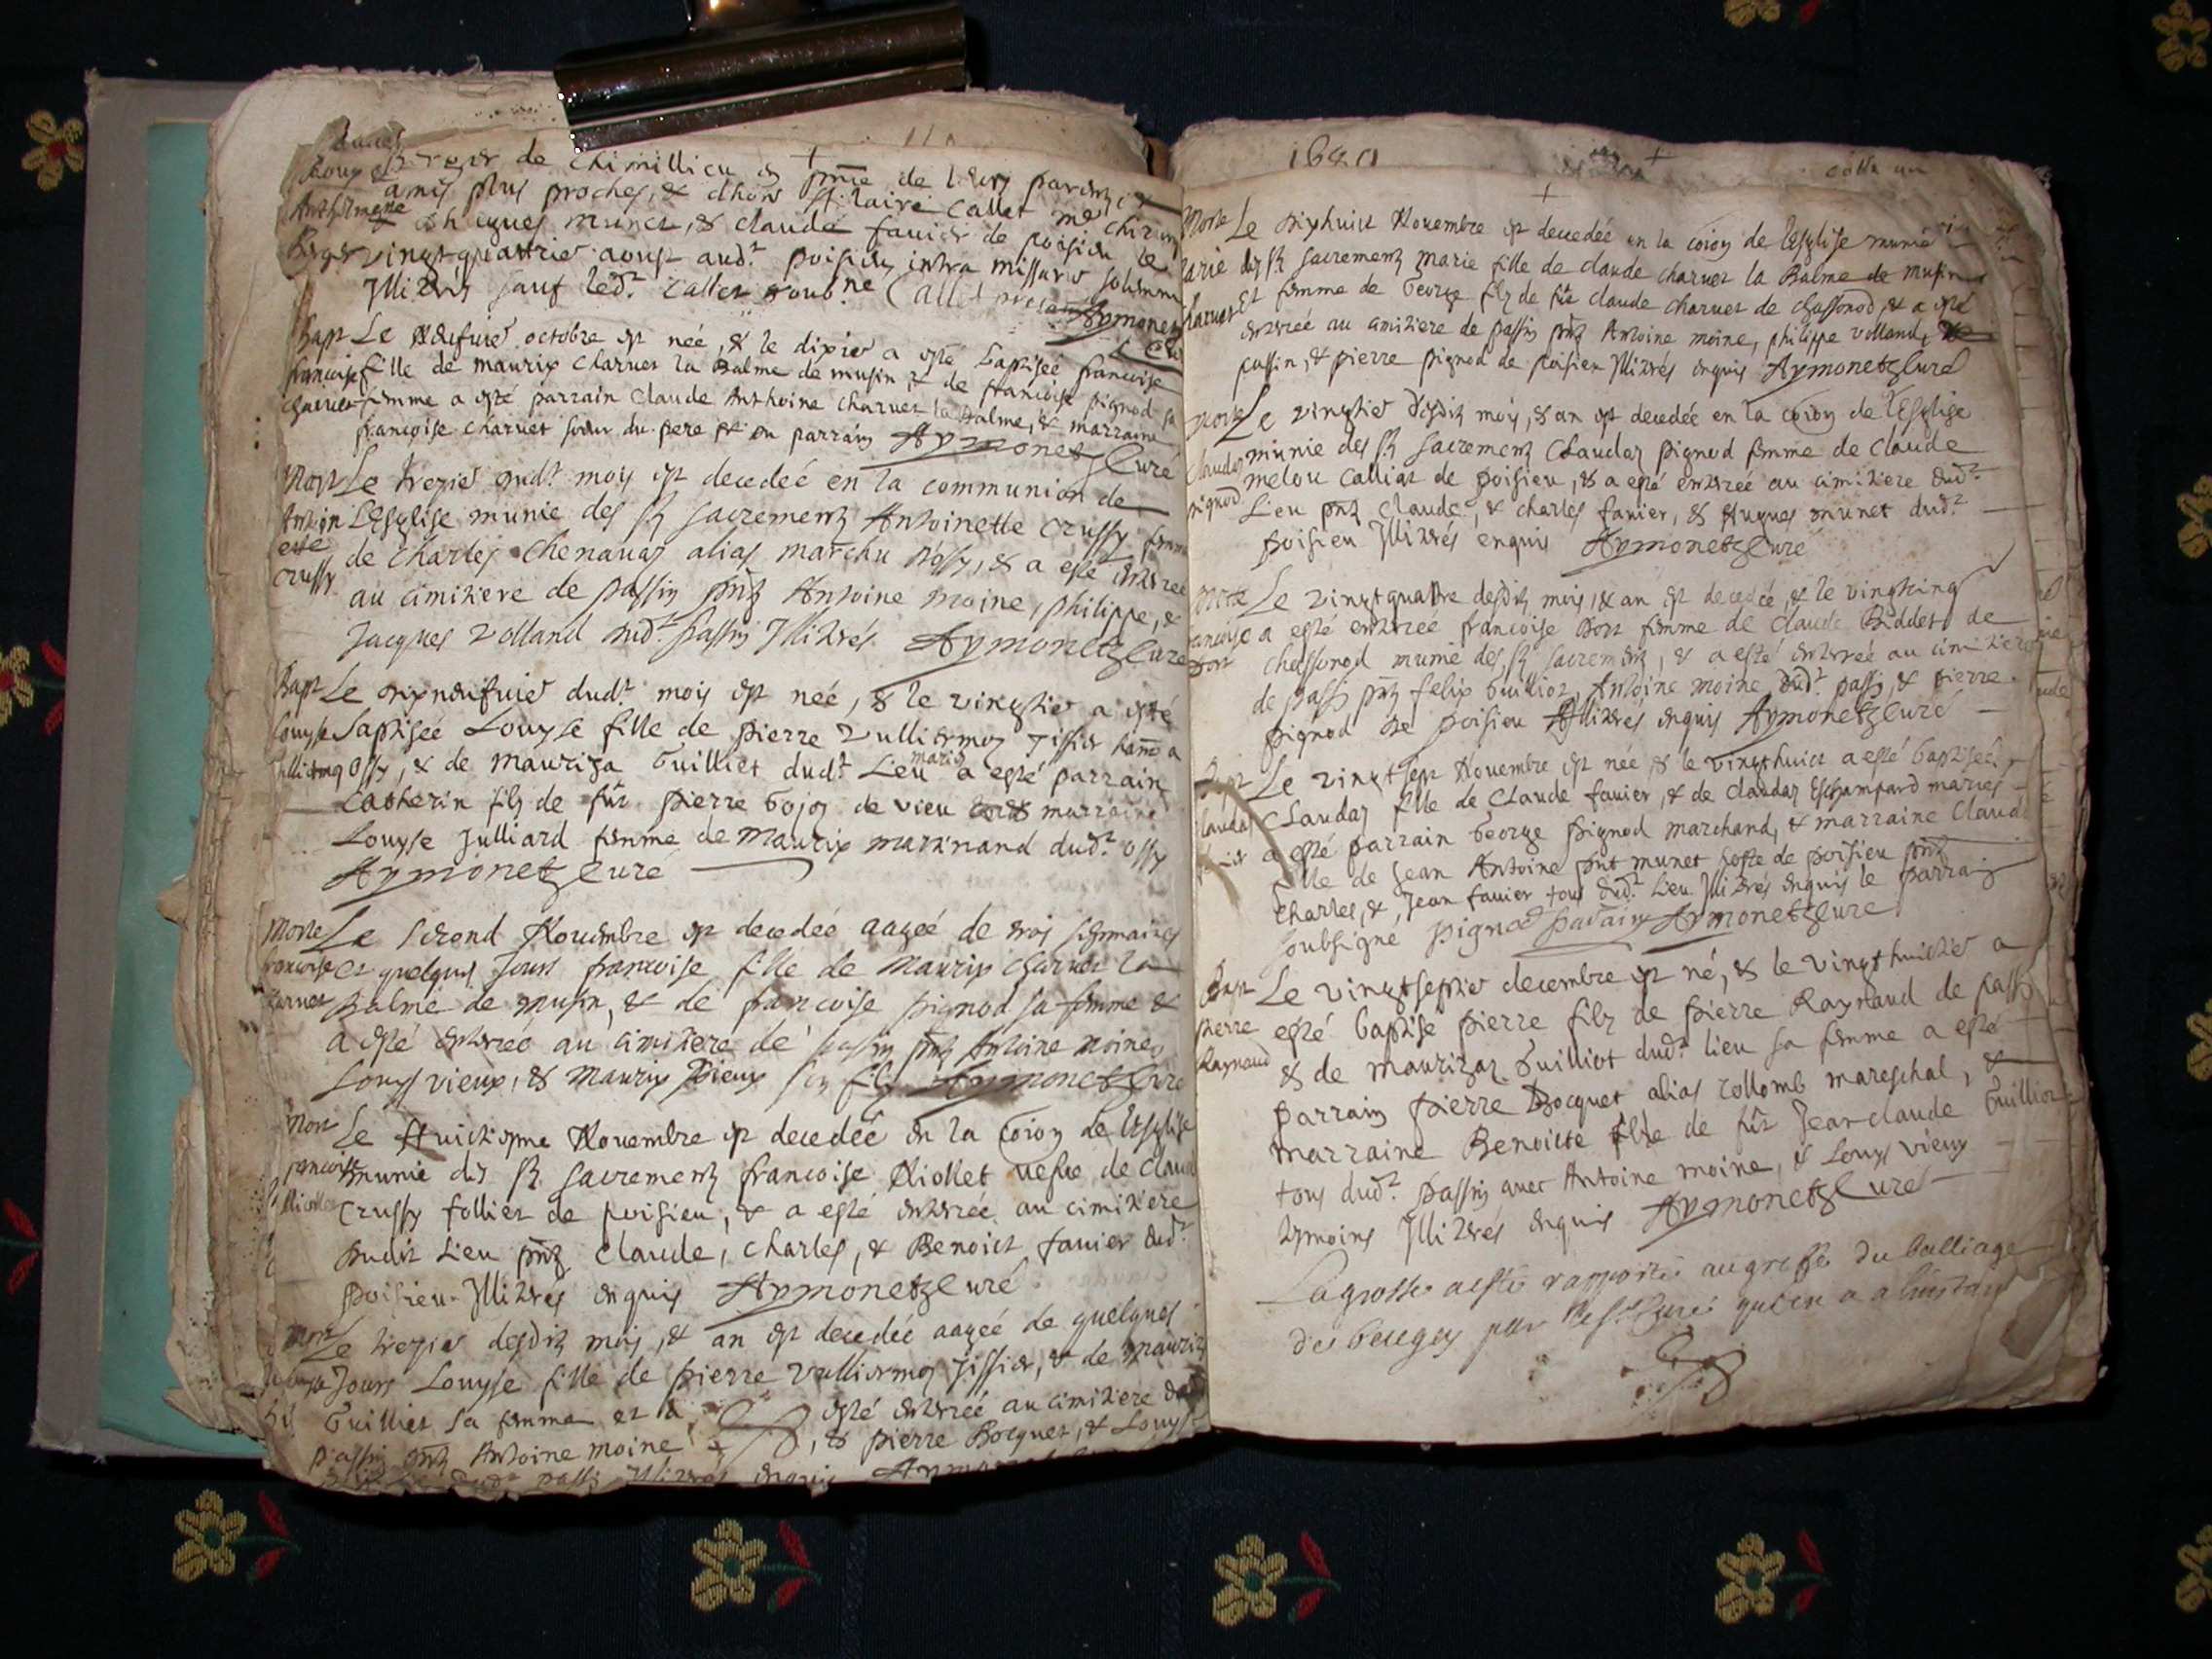 de Chimillieu en pnce de leurs parens et
amis plus proches, & dhon. hilaire Callet me chirurg
hugues munet, & claude favier de poisieu le
vingtquatrie aoust aud.t poisieu intra missarum solemnia
Illitrés sauf led.t Callet soub.ne Callet Aymonetz Curé
Bapt Le neufuie octobre est née, & le dixie a esté baptiseé francoise
francoise fille de maurix Charuet la Balme de musin, & de francoise pignod sa
Charuet femme a esté parrain Claude Anthoine Charuet la Balme, & marraine
francoise Charuet soeur du pere & du parrain Aymonetz Curé
Mort Le trezie dud.t mois est decedeé en la communion de
Antoin LEsglise munie des Sts sacrementz Antoinette Crussy femme
ette de Charles Chenauaz alias marchu d'ossy, & a esté enterreé
Crussy au cimitiere de passin pntz Antoine moine, philippe, &
Jacques Volland dud.t passin Illitrés Aymonetz Curé
Bapt Le dixneufuie dud.t mois est née, & le vingtie a esté
Louyse baptiseé Louyse fille de pierre Vulliermoz Tissier
ossy, & de mauriza Guilliet dud.t Lieu mariés a esté parrain
Catherin filz de fût pierre Gojoz de vieu & marraine
Louyse Julliard femme de maurix martinand dud.t ossy
Aymonetz Curé
Morte Le second Nouembre est decedeé aageé de trois sepmaines
francoise et quelques Jours francoise fille de maurix Charuet la
Charuet Balme de musin, & de francoise pignod sa femme &
a esté enterreé au cimitiere de passin pntz Antoine moine,
Louys vieux, & maurix vieux son filz Aymonetz Curé
Mort Le huictiesme Nouembre est decedeé en la Coion de lEsglise
francoise munie des Sts sacrementz francoise Niollet vefue de Claude
Crussy follier de poisieu, & a esté enterreé au cimitiere
dudit Lieu pntz Claude, Charles, & Benoict fauier dud.t
poisieu Illitrés enquis Aymonetz Curé
Mort Le trezie desditz mois, & an est decedeé aageé de quelques
Louyse Jours Louyse fille de pierre Vulliermoz Tissier, & de mauriza
Guilliet sa femme et a esté enterreé au cimitiere dud.t
passin pntz Antoine moine, & pierre Bocquet, & Louys
dud.t passin Illitrés enquis Aymonetz
1680
Morte Le dixhuict Nouembre est decedeé en la Coion de lEsglise munie
marie des Sts sacrementz marie fille de claude charuet la Balme de musin
Charuet Et femme de George filz de fût Claude charuet de chassonod, & a esté
enterreé au cimitiere de passin pntz Antoine moine, philippe volland, de
passin, & pierre pignod de poisieu Illitrés enquis Aymonetz Curé
Morte Le vingtie desditz mois, & an est decedeé en la Coion de lEsglise
Claudaz munie des Sts sacrementz Claudaz pignod femme de Claude
pignod melou Calliat de poisieu, & a esté enterreé au cimitiere dud.t
Lieu pntz Claude, & charles fauier, & hugues munet dud.t
poisieu Illitrés enquis Aymonetz Curé
Morte Le vingtquatre desditz mois, & an est decedeé, & le vingtcinq
francoise a esté enterreé francoise Dort femme de Claude Biddet de
Dort chassonod munie des Sts sacrementz, & a esté enterreé au cimitiere
de passin pntz felix Guilliot, Antoine moine dud.t passin, & pierre
pignod de poisieu Illitrés enquis Aymonetz Curé
Bapt Le vingtsept Nouembre est née & le vingthuict a esté baptiseé
Claudaz Claudaz fille de Claude fauier, & de claudaz Eschampard mariés
fauier a esté parrain George pignod marchand, & marraine Claudaz
fille de Jean Antoine munet hoste de poisieu pntz
Charles, & Jean fauier tous dud.t Lieu Illitrés enquis le parrain
soubsigné pignod parain Aymonetz Curé
Bapt Le vingtseptie decembre est né, & le vingthuictie a
pierre esté baptisé pierre filz de pierre Raynaud de passin
Raynaud & de maurizaz Guilliot dud.t lieu sa femme a esté
parrain pierre Bocquet alias Collomb mareschal, &
marraine Benoitte fille de fût Jean claude Guilliot
tous dud.t passin avec Antoine moine, & Louys vieux
tesmoins Illitrés enquis Aymonetz Curé
La grosse aesté rapportée au greffe du balliage
de beugey par le sr Curé